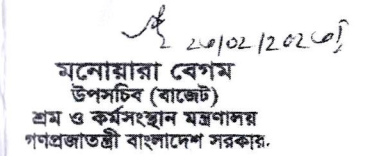 ২৩/০২/২০২৩
মনোয়ারা বেগম
উপসচিব (বাজেট)
শ্রম ও কর্মসংস্থান মন্ত্রণালয়
গণপ্রজাতন্ত্রী বাংলাদেশ সরকার.